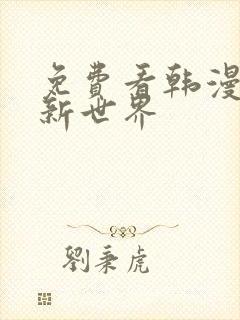 免费看韩漫
新世界
劉秉虎